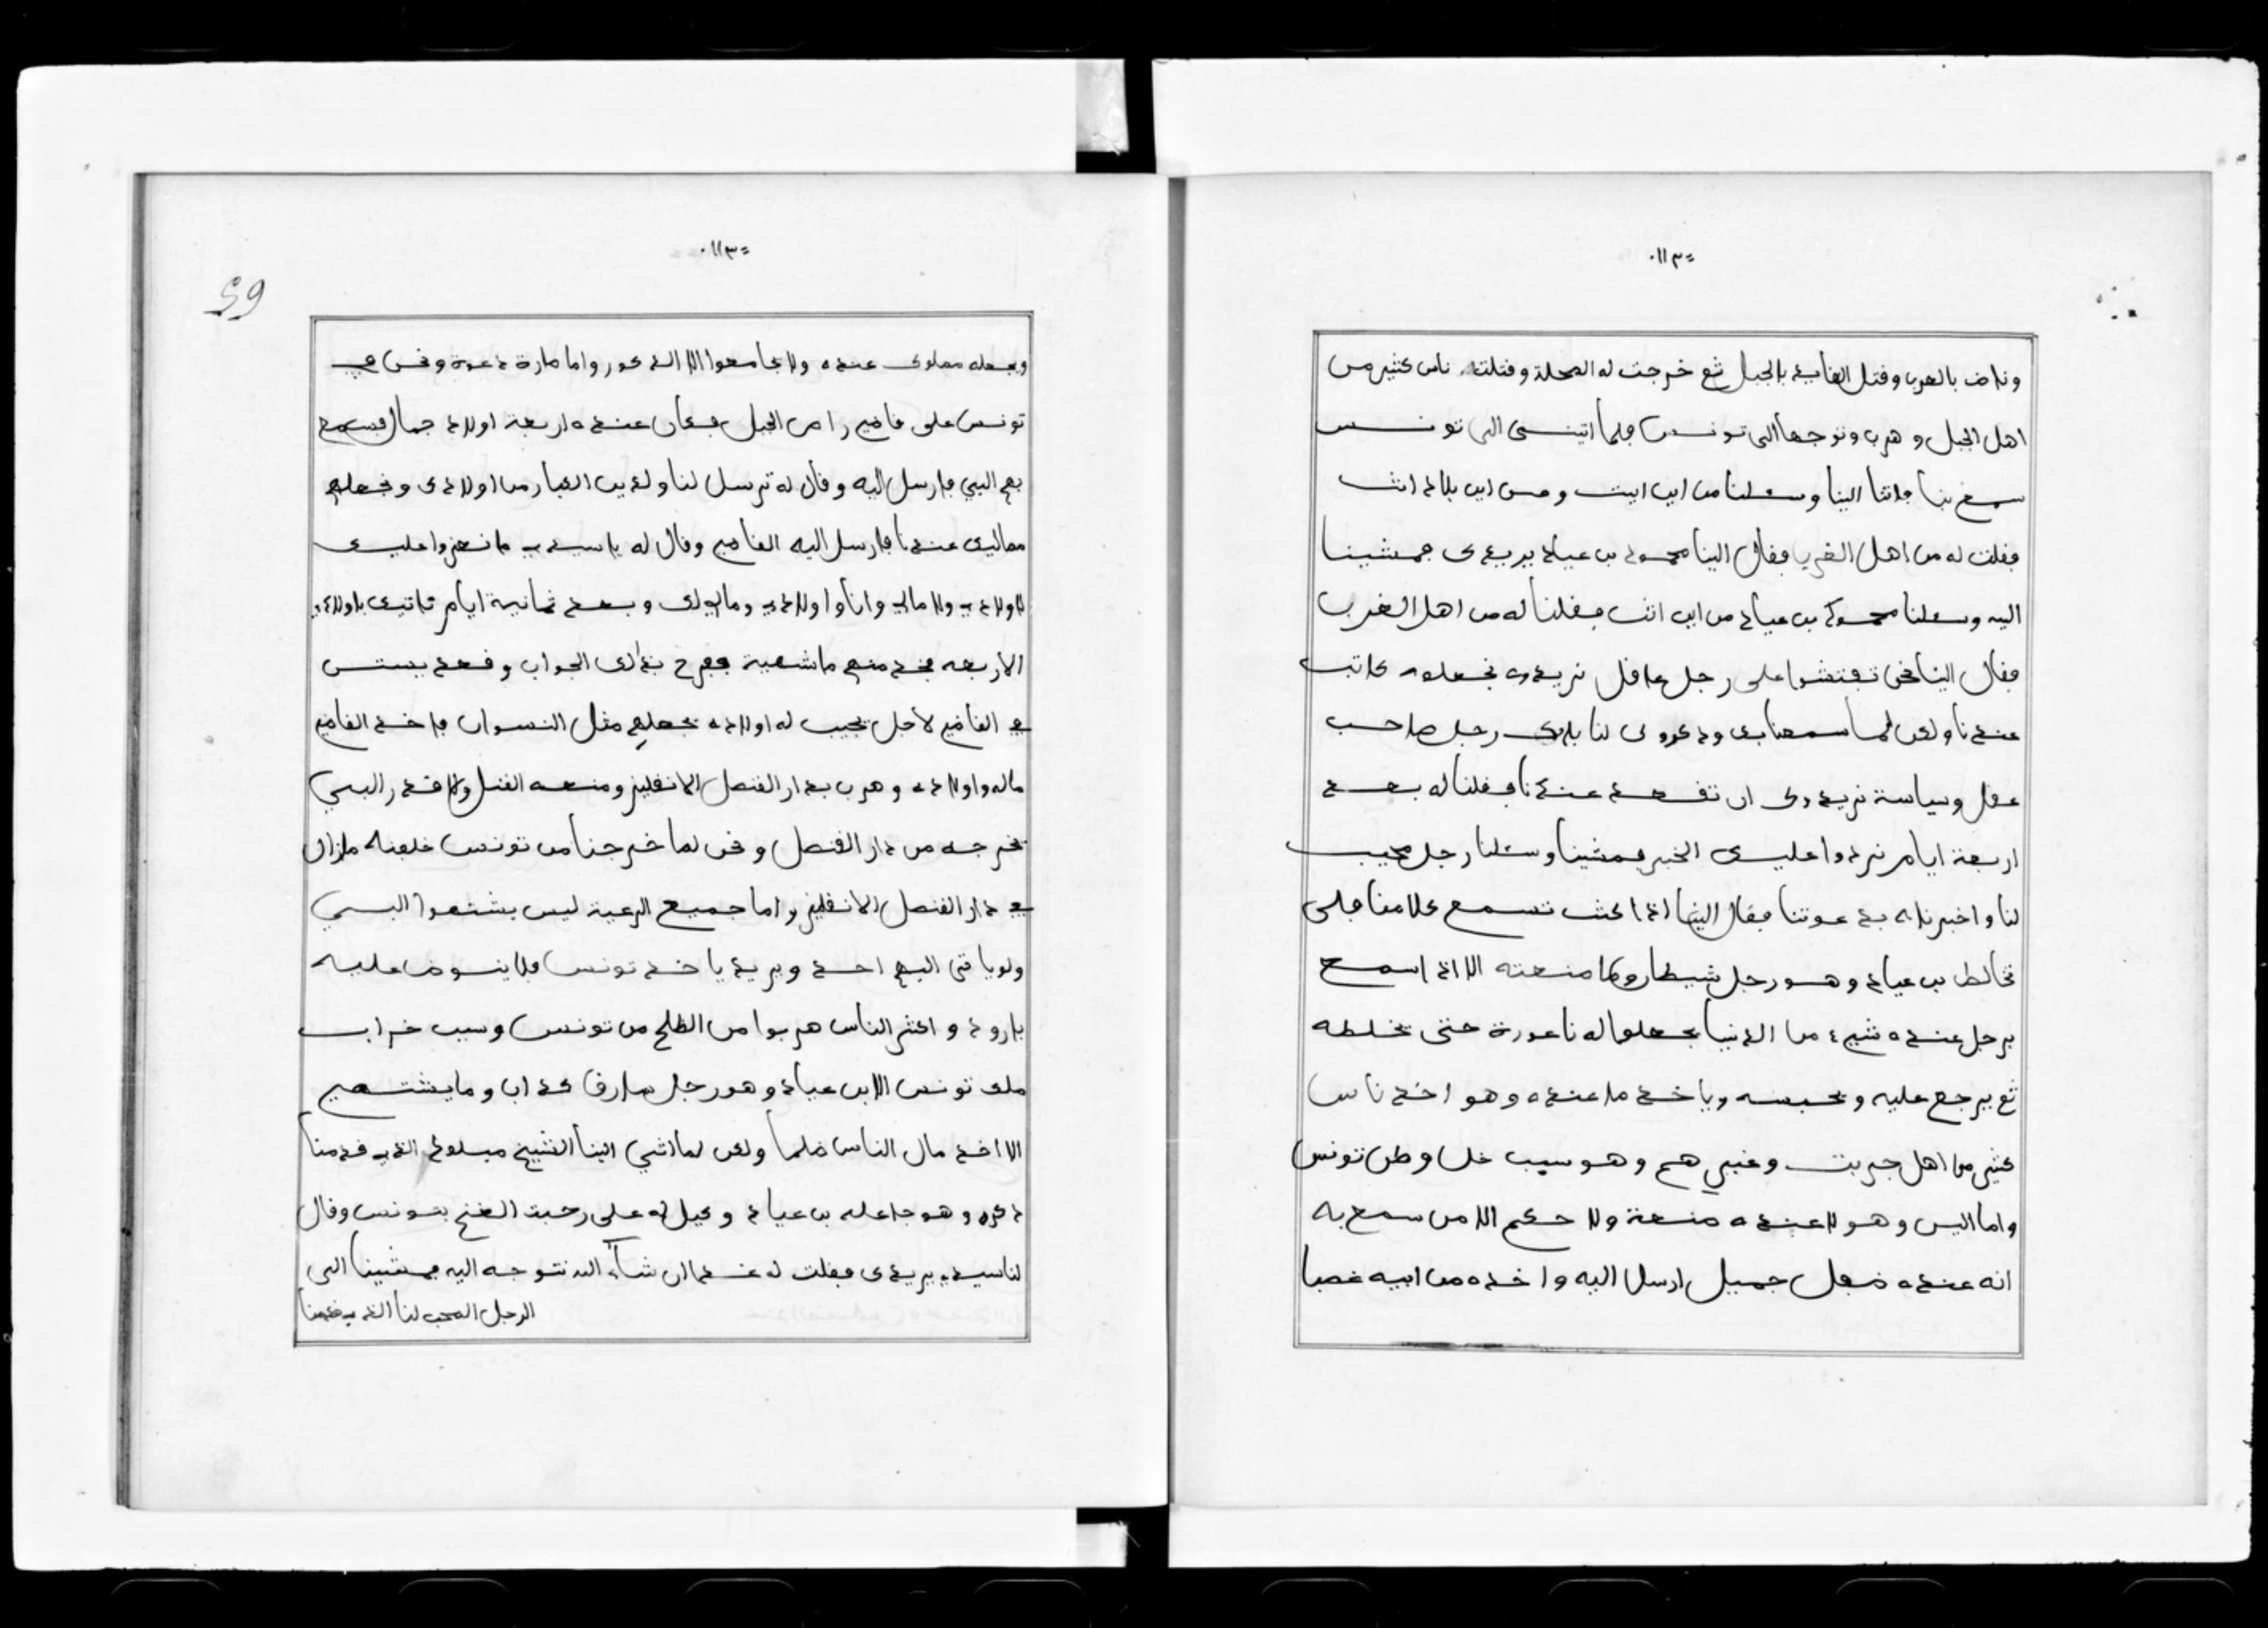 وناض بالعرب وقتل القايد بالجبل ثم خرجت له المحلة وقتلته ناس كثير من
اهل الجبل وهرب وتوجه الى تونس فلما اتينى الى تونس
سمع بنا فاتا الينا وسئلنا من اين اتيت ومن اين بلاد انت
فقلت له من اهل الغرب فقال الينا محمود بن عياد يريدك فمشينا
اليه وسئلنا محمود بن عياد من اين انت فقلنا له من اهل الغرب
فقال الينا نحن نفتشوا على رجل عاقل نريدوه نجعلوه كاتب
عندنا ولكن لما سمعنا بك وذكروك لنا بانك رجل صاحب
عقل وسياسة نريدوك ان تقعد عندنا فقلنا له بعد
اربعة ايام نردوا عليك الخبر فمشينا وسئلنا رجل محب
لنا واخبرناه بدعوتنا فقال الينا اذا كنت تسمع كلامنا فلا
تخالط بن عياد وهو رجل شيطار وما منعته الا اذا اسمع
برجل عنده شيء من الدنيا يجعلوا له ناعورة حتى تخلطه
ثم يرجع عليه ويحبسه وياخذ ما عنده وهو اخذ ناس
كثير من اهل جربت وغيرهم وهو سبب خلا وطن تونس
واما البي وهو لا عنده منعة ولا حكم الا من سمع به
انه عنده طفل جميل ارسل اليه واخذه من ابيه غصبا
ويجعله مملوك عنده ولا يجامعوا الا الذكور واما مارة دعوة ونحن في
تونس على قاضي راس الجبل فكان عنده اربعة اولاد جمال فسمع
بهم البي فارسل اليه وقال له ترسل لنا ولدين الكبار من اولادك ونجعلهم
مماليك عندنا فارسل اليه القاضي وقال له ياسيدي ما نعزوا عليك
لا ولادي ولا مالي وانا واولادي ومالي لك وبعد ثمانية ايام فاتيك باولادي
الاربعه فخذ منهم ماشهية ففرح بذلك الجواب وقعد يستن
في القاضي لاجل يجيب له اولاده يجعلهم مثل النسوان فاخذ القاضي
ماله واولاده وهرب بدار القنصل الانقليز ومنعه القنصل ولا قدر البي
يخرجه من دار القنصل ونحن لما خرجنا من تونس خلفناه مازال
في دار القنصل الانقليز واما جميع الرعية ليس يشتهوا البي
ولو ياتي اليهم احد ويريد ياخذ تونس فلا ينوض عليه
بارود واكثر الناس هربوا من الظلم من تونس وسبب خراب
ملك تونس الا بن عياد وهو رجل سارق كذاب وما يشتهي
الا اخذ مال الناس ظلما ولكن لما اتي الينا الشيخ مبلوط الذي قدمنا
ذكره وهو جاعله بن عياد وكيل له على رحبة الغنم بتونس وقال
لنا سيدي يريدك فقلت له غدا ان شاء الله نتوجه اليه فمشينا الى
الرجل المحب لنا الذي قدمنا